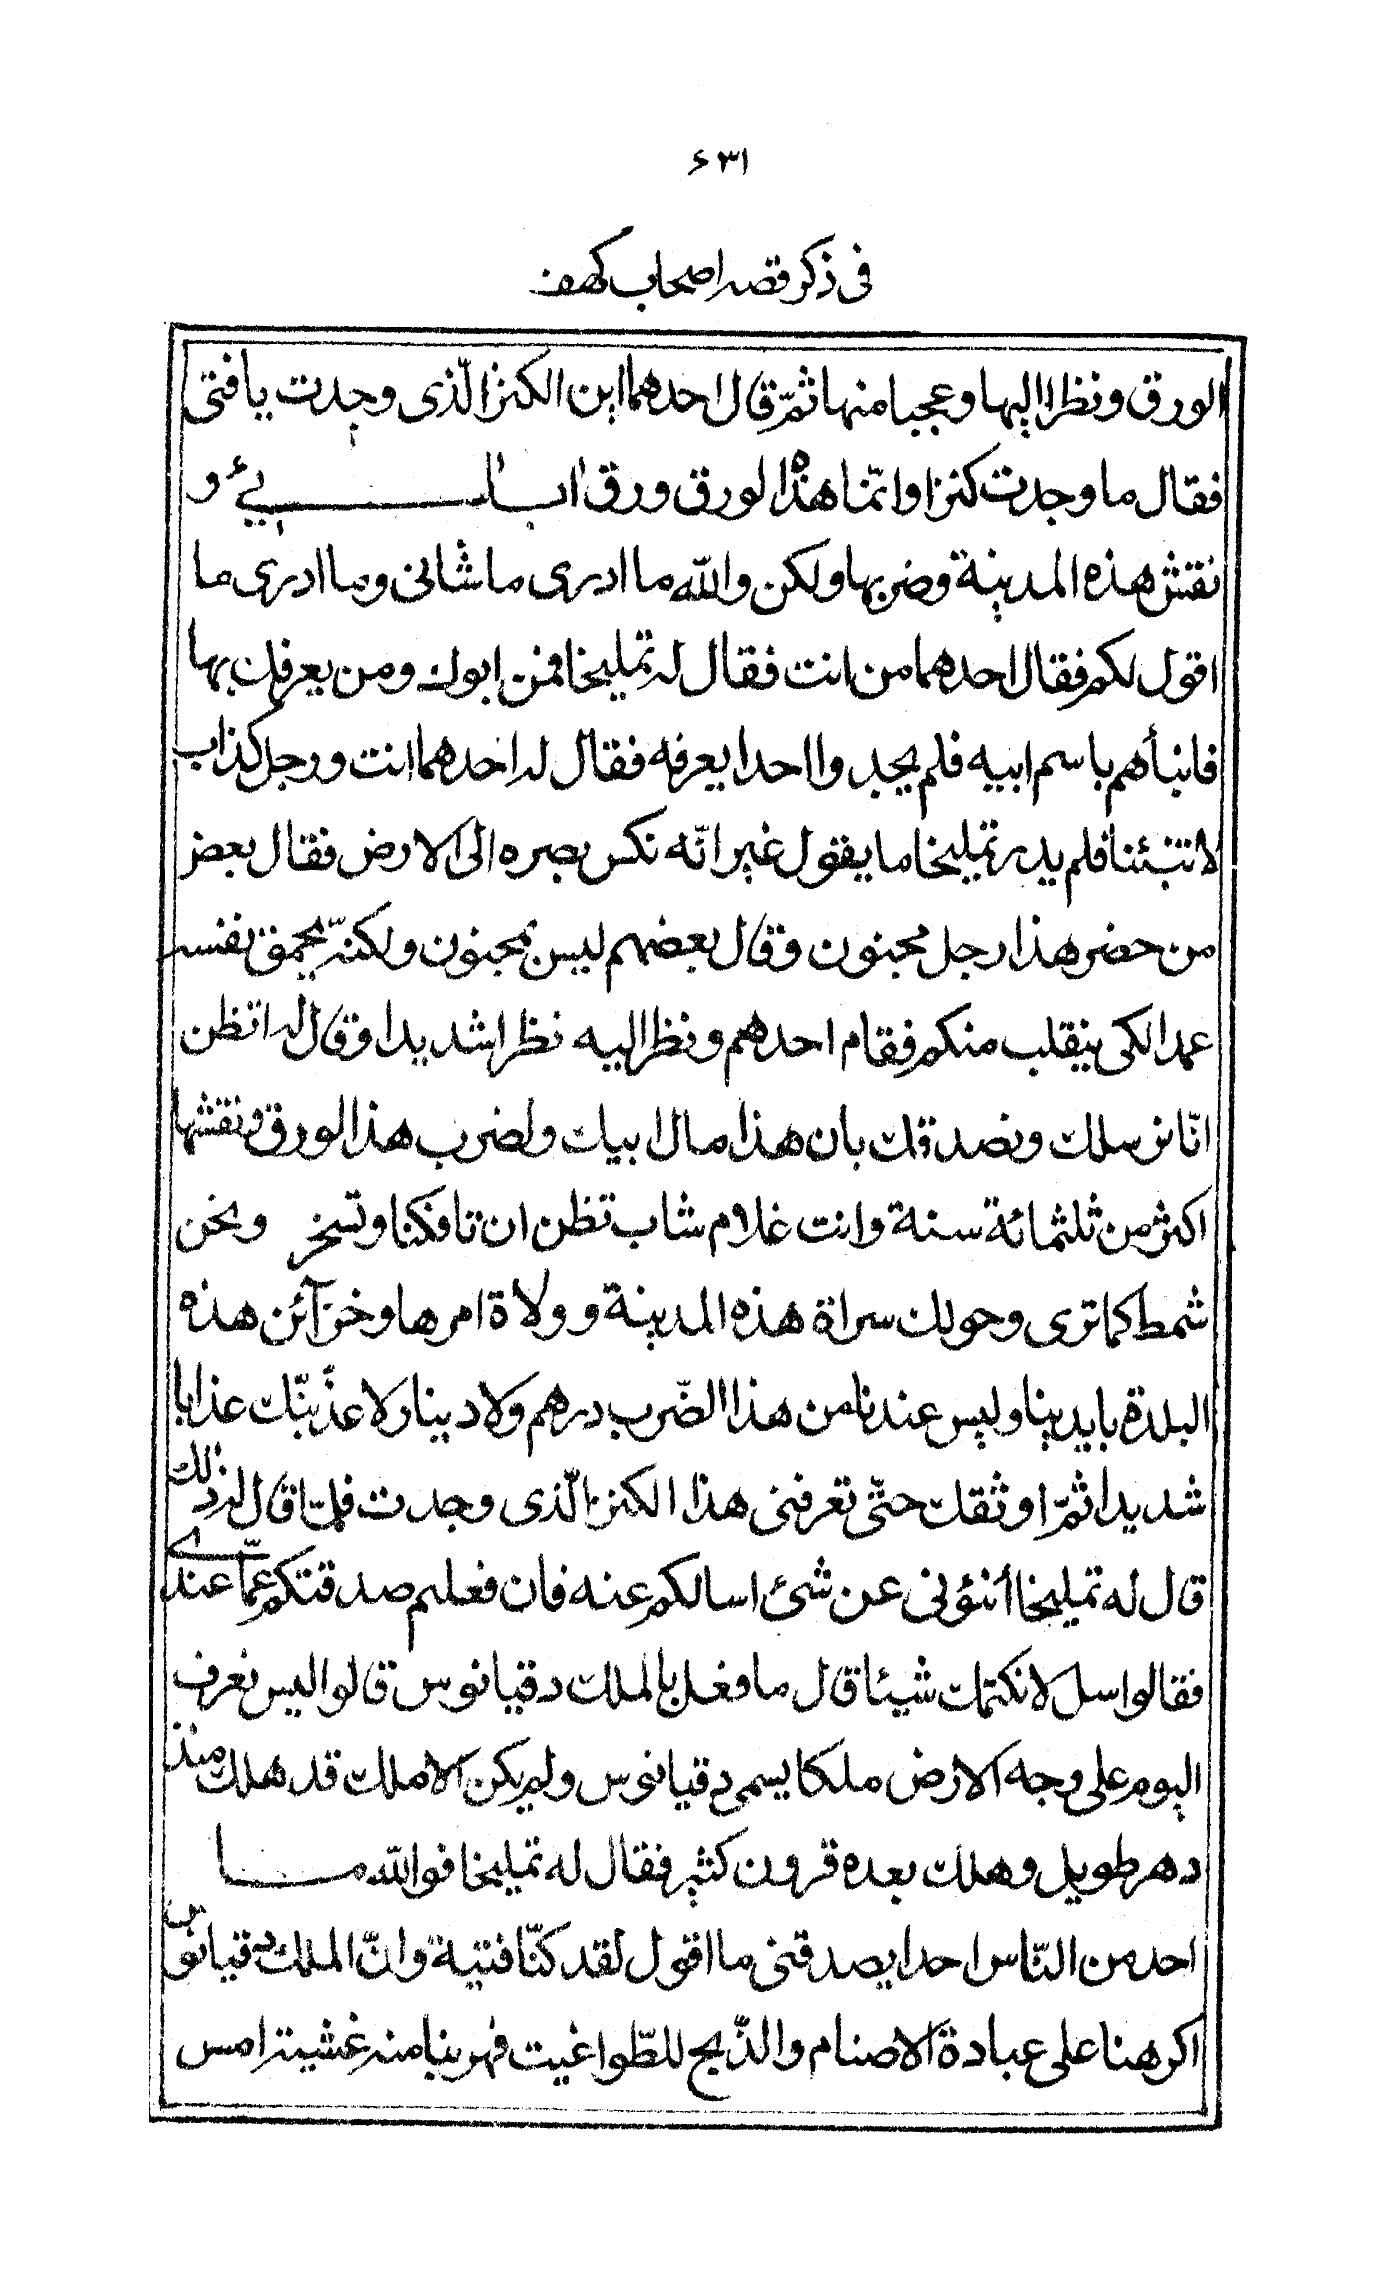 ۶۳۱
فی ذکر قصه اصحاب کهف
الورق ونظرا الیها وعجبا منها ثمّ قال احدهما این الکنز الّذی وجدت یا فتی
فقال ما وجدت کنزا وانّما هذا الورق ورق ابائی و
نقش هذه المدینة وضربها ولکن والله ما ادری ما شانی وما ادری ما
اقول لکم فقال احدهما من انت فقال له تملیخا فمن ابوك ومن یعرفك بها
فانبأهم باسم ابیه فلم یجدوا احدا یعرفه فقال له احدهما انت ورجل کذاب
لا تنبئنا فلم یدر تملیخا ما یقول غیر انّه نکس بصره الی الارض فقال بعض
من حضر هذا رجل مجنون وقال بعضهم لیس بمجنون ولکنّه یحمق نفسه
عمدا لکی ینقلب منکم فقام احدهم ونظر الیه نظرا شدیدا وقال له اتظن
انّا نرسلك ونصدقك بان هذا مال ابیك ولضرب هذا الورق ونقشها
اکثر من ثلثمائة سنة وانت غلام شاب تظن ان تافکنا وتسخر ونحن
شمط کما تری وحولك سراة هذه المدینة وولاة امرها وخزآئن هذه
البلدة بایدینا ولیس عندنا من هذا الضّرب درهم ولا دینار لاعذّبنّك عذابا
شدیدا ثمّ اوثقك حتّی تعرفنی هذا الکنز الّذی وجدت فلمّا قال له ذلك
قال له تملیخا أنبؤنی عن شئ اسالکم عنه فان فعلیم صدقتکم عمّا عندی
فقالوا سل لا نکتمك شیئا قال ما فعل بالملك دقیانوس قالوا لیس نعرف
الیوم علی وجه الارض ملکا یسمی دقیانوس ولم یکن الا ملك قد هلك منذ
دهر طویل وهلك بعده قرون کثیر فقال له تملیخا فوالله ما
احد من النّاس احدا یصدقنی ما اقول لقد کنّا فتیة وانّ الملك دقیانوس
اکرهنا علی عبادة الاصنام والذّبح للطّواغیت فهربنا منه غشیة امس